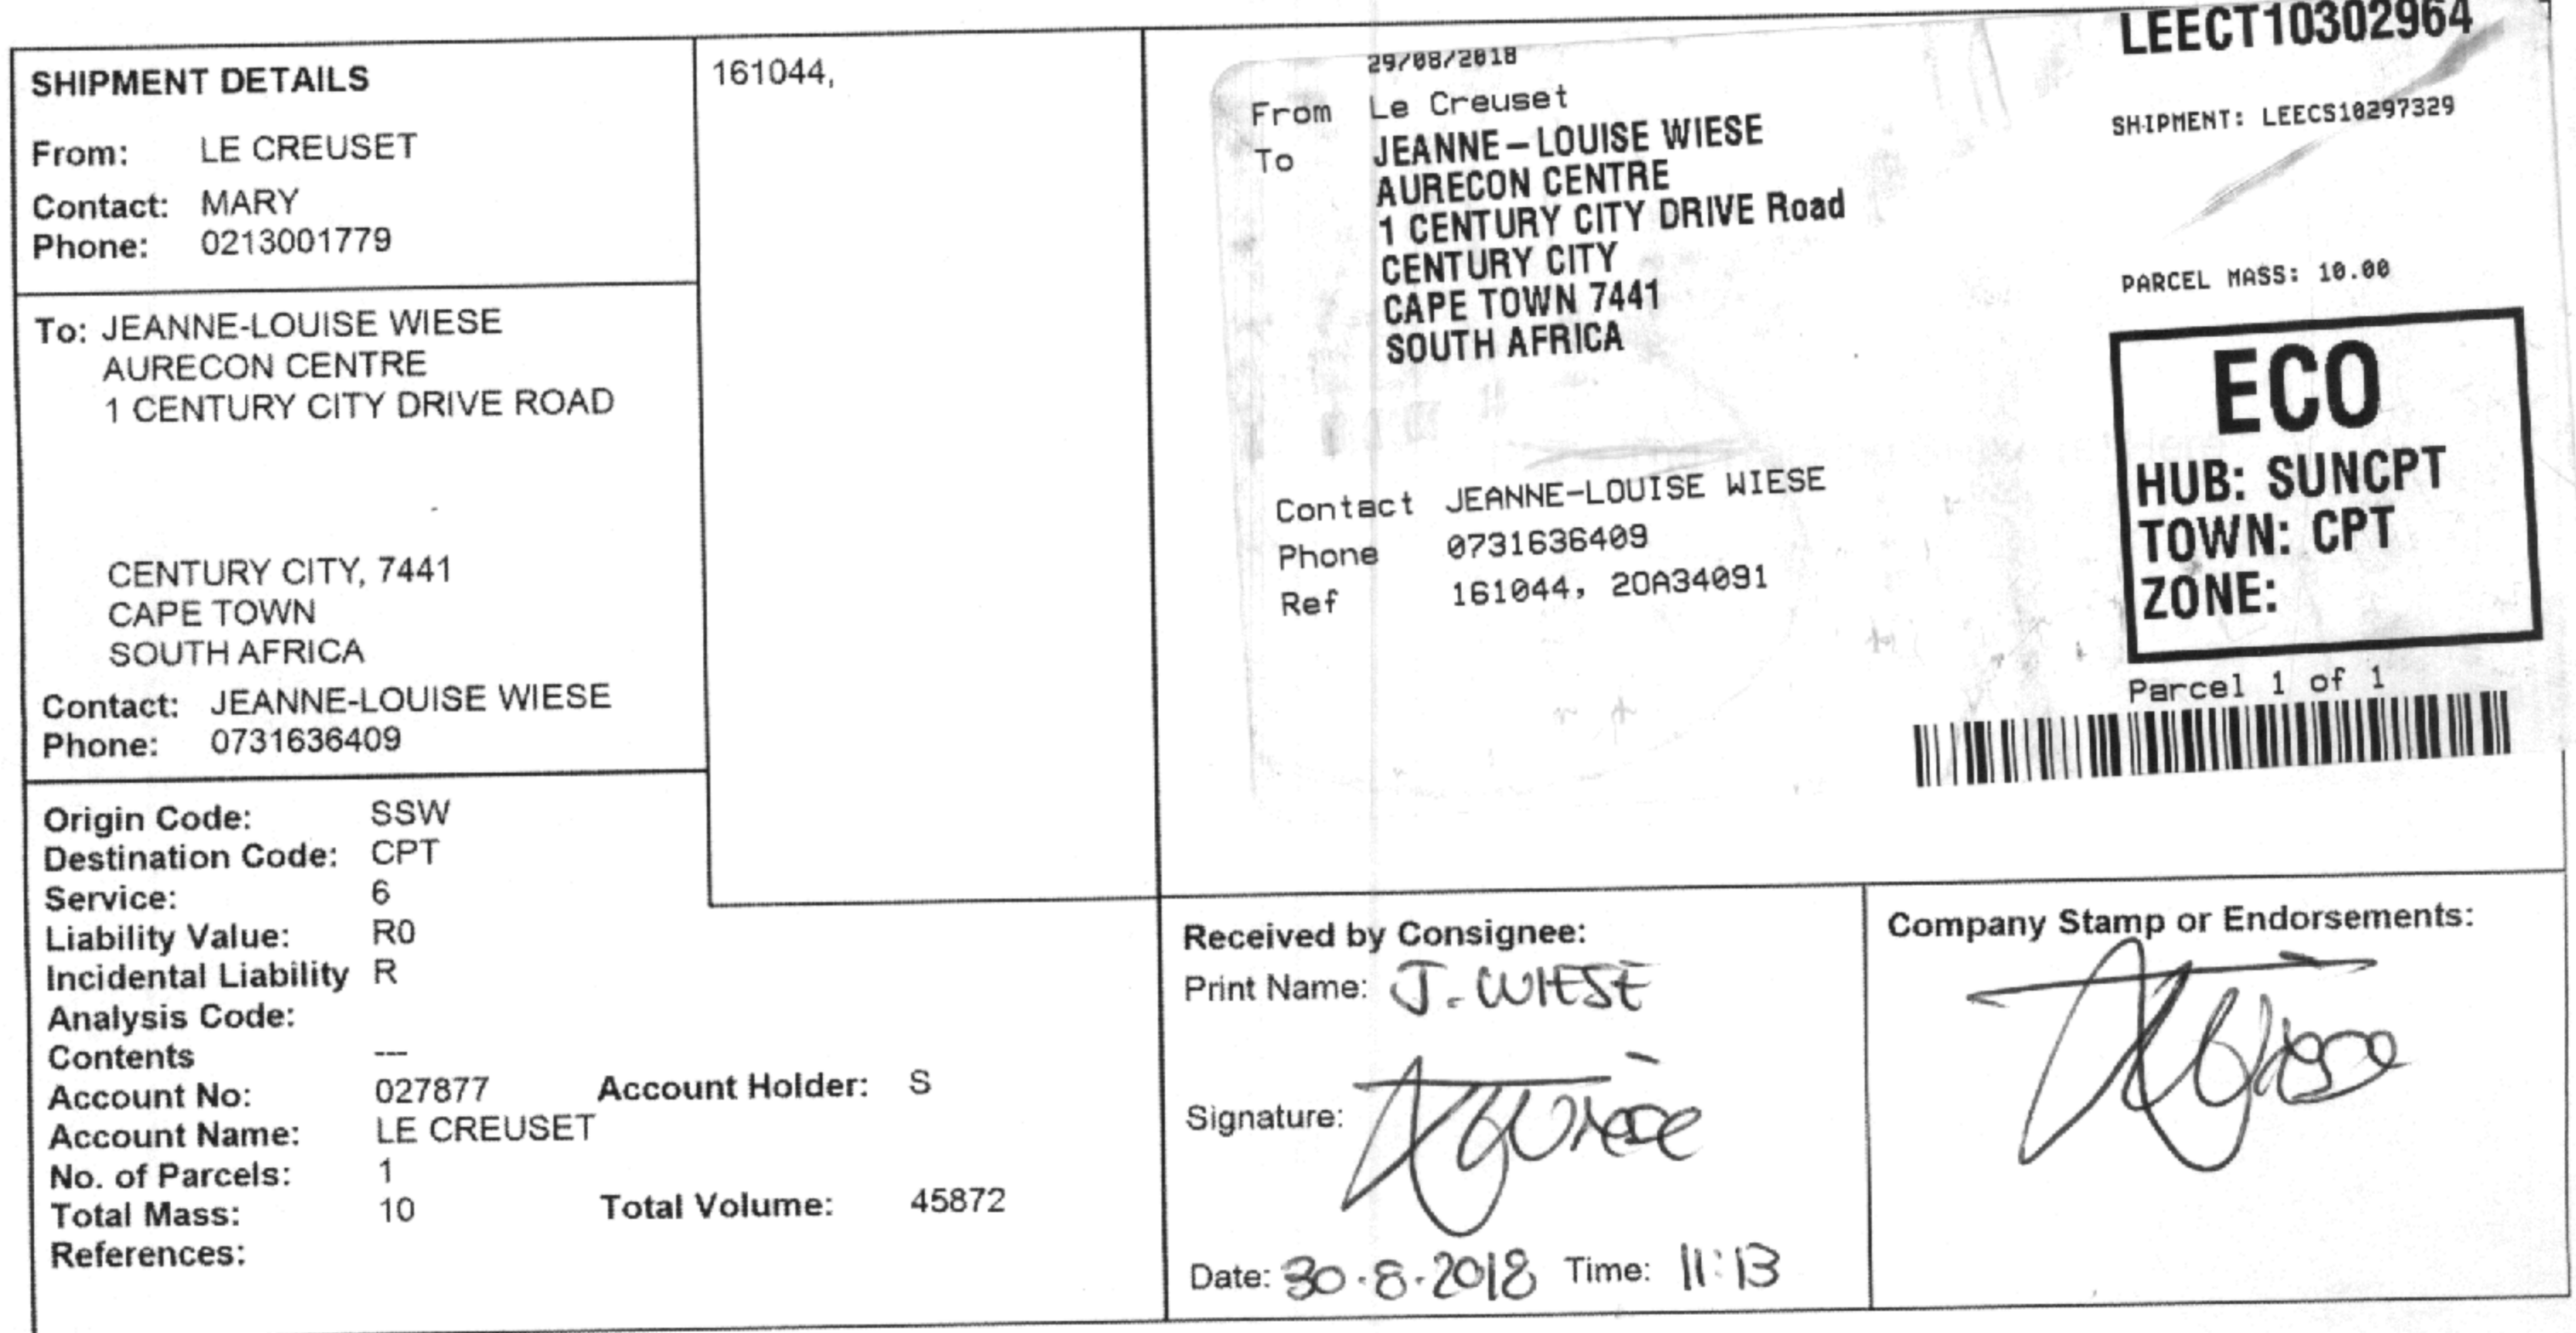 SHIPMENT DETAILS
From: LE CREUSET
Contact: MARY
Phone: 0213001779
To: JEANNE-LOUISE WIESE
AURECON CENTRE
1 CENTURY CITY DRIVE ROAD
CENTURY CITY, 7441
CAPE TOWN
SOUTH AFRICA
Contact: JEANNE-LOUISE WIESE
Phone: 0731636409
Origin Code: SSW
Destination Code: CPT
Service: 6
Liability Value: R0
Incidental Liability R
Analysis Code:
Contents ---
Account No: 027877 Account Holder: S
Account Name: LE CREUSET
No. of Parcels: 1
Total Mass: 10 Total Volume: 45872
References:
161044,
29/08/2018
From Le Creuset
To JEANNE-LOUISE WIESE
AURECON CENTRE
1 CENTURY CITY DRIVE Road
CENTURY CITY
CAPE TOWN 7441
SOUTH AFRICA
Contact JEANNE-LOUISE WIESE
Phone 0731636409
Ref 161044, 20A34091
LEECT10302964
SHIPMENT: LEECS10297329
PARCEL MASS: 10.00
ECO
HUB: SUNCPT
TOWN: CPT
ZONE:
Parcel 1 of 1
Received by Consignee:
Print Name: J. WIESE
Signature:
Date: 30.8.2018 Time: 11:13
Company Stamp or Endorsements: